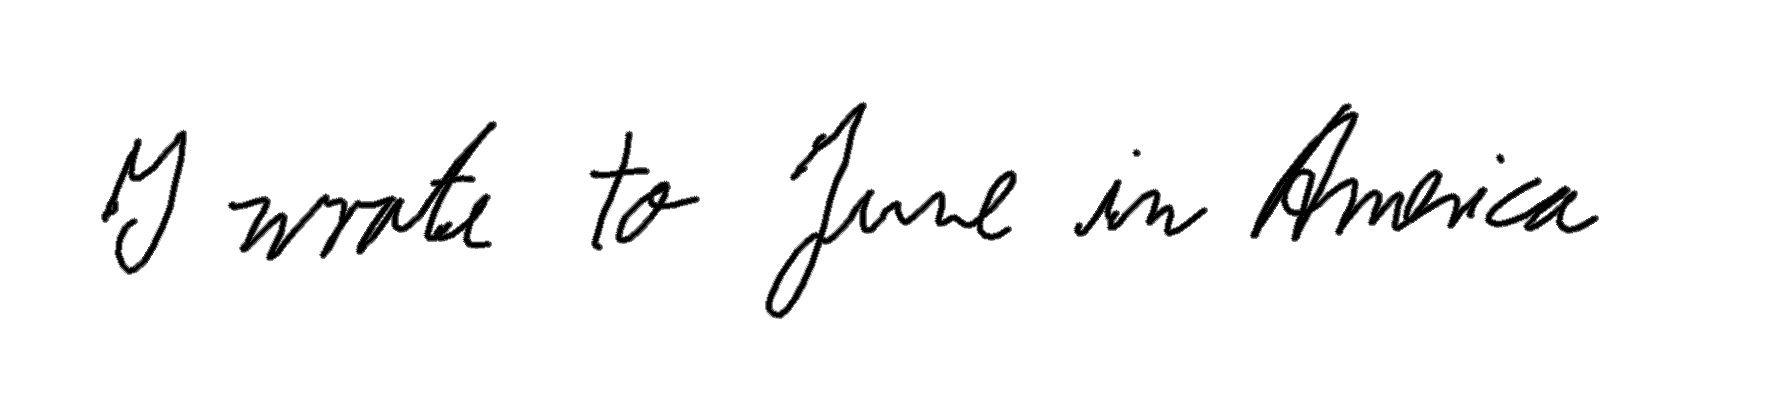 I wrote to June in America